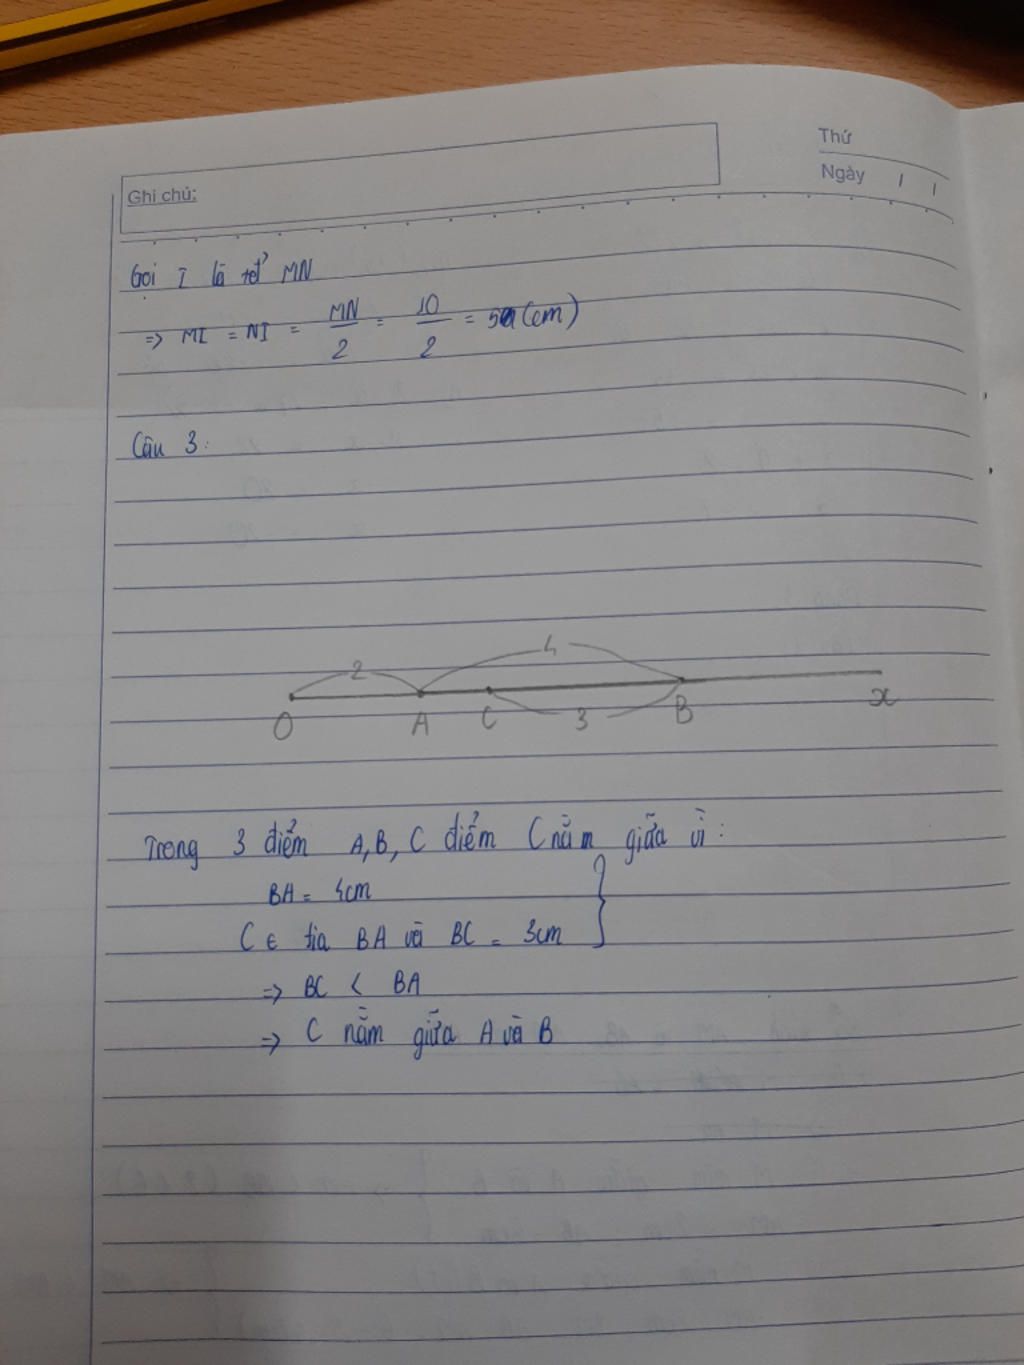 Thứ
Ghi chú:
Ngày / /
Gọi I là tđ' MN
=> MI = NI = MN/2 = 10/2 = 5 (cm)
Câu 3:
2 4
O A C 3 B x
Trong 3 điểm A, B, C điểm C nằm giữa vì:
BA = 4cm
C ∈ tia BA và BC = 3cm }
=> BC < BA
=> C nằm giữa A và B